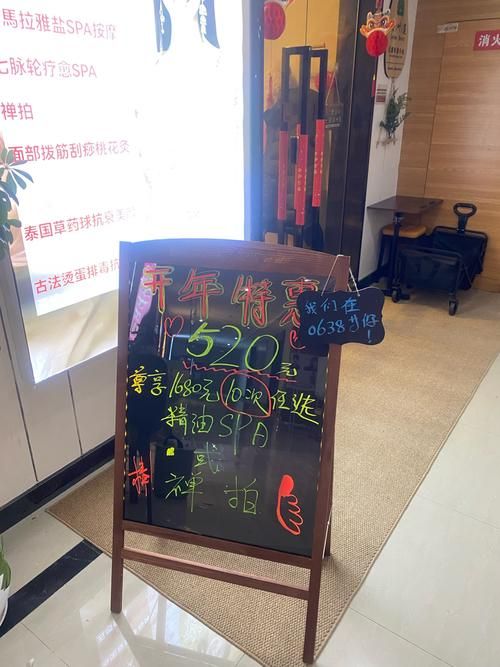 馬拉雅盐SPA按摩
七脉轮疗愈SPA
禅拍
面部拨筋刮痧桃花灸
泰国草药球抗衰美
古法烫蛋排毒抗
消火
开年特惠
520元
尊享1680元10次任选
精油SPA
或
禅拍
我们在
0638等你
!